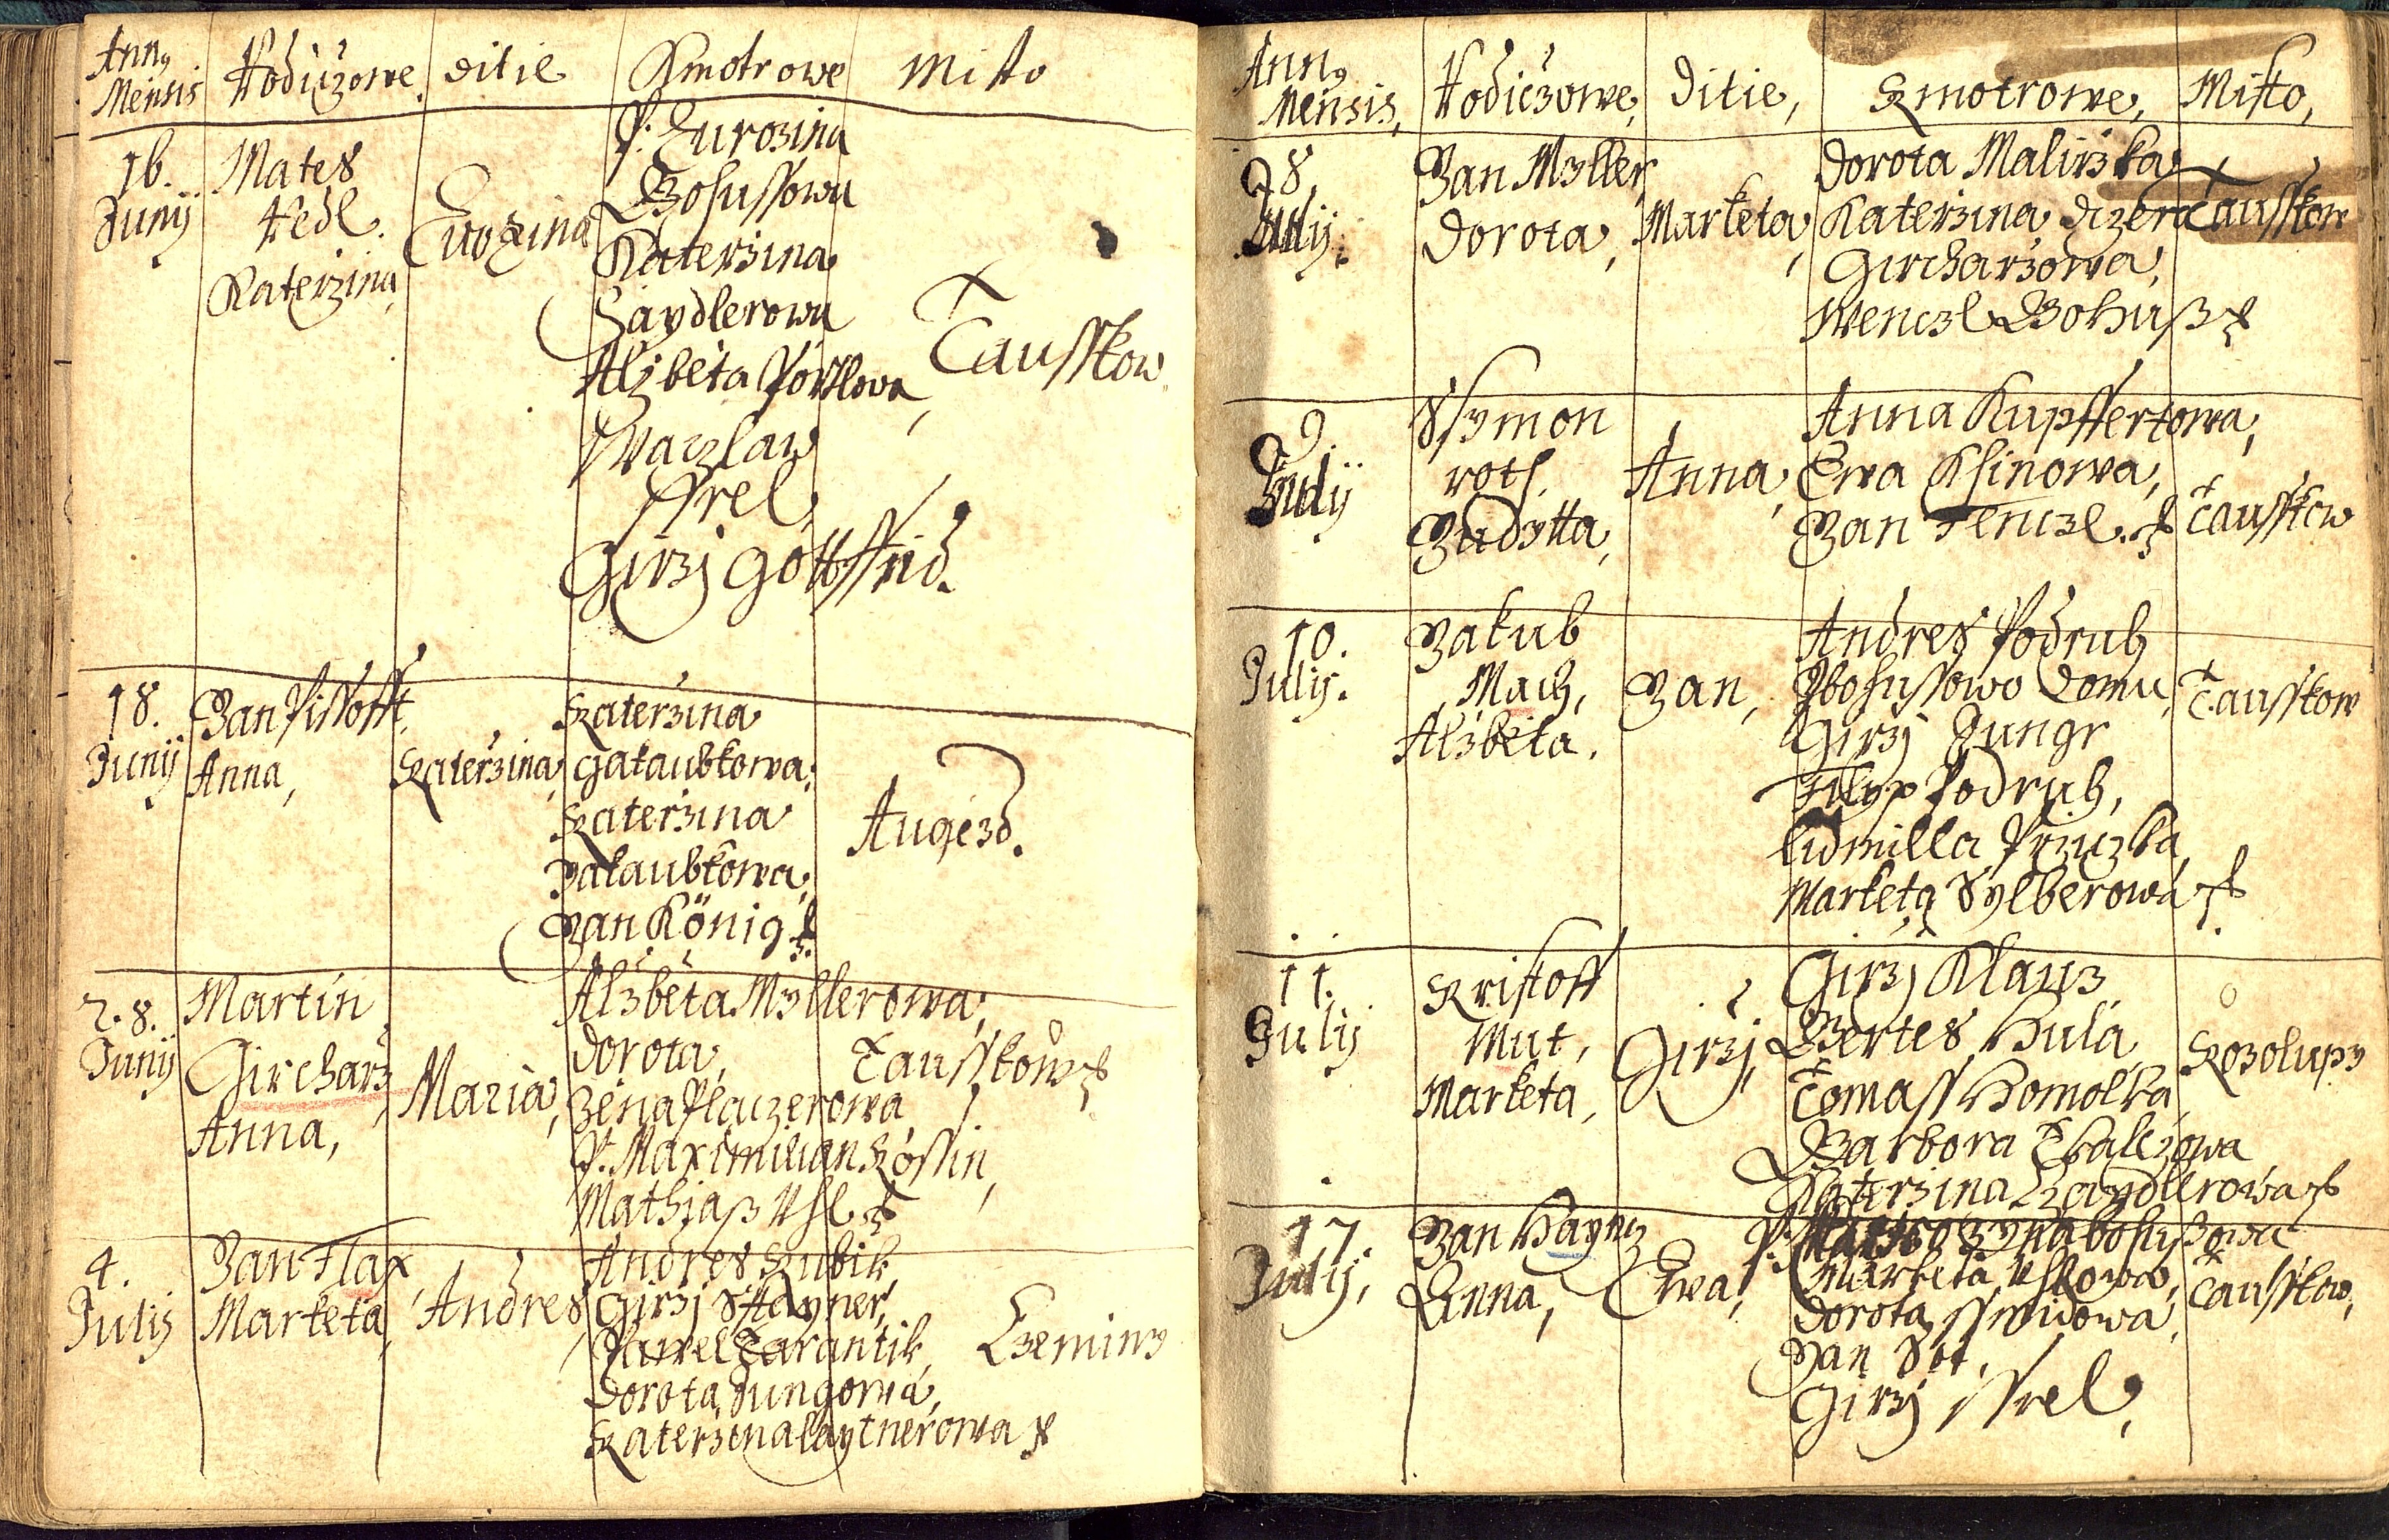 Anny Mensis Rodiczowe. ditie Kmotrowe Misto
16. Junij
Mates
Fedl.
Katerzina,
Eurozina
P: Eurozina
Bohussowa
Katerzina
Haydlerowa
Alzbeta Pörtlowa,
Waczlaw
ssrel,
Girzj Gottffrid.
Tausskow
18. Junij
Jan Pissofft,
Anna,
Katerzina,
Katerzina
Gakaubkowa,
Katerzina
Jakaubkowa,
Jan König
Augezd.
28. Junij
Martin
Gircharz,
Anna,
Maria,
Alzbeta Myllerowa,
Dorota,
Zena Placzerowa
P. Maximilian Kössin,
Mathiaß Uhl
Tausskow
4. Julij
Jan Flax
Marketa,
Andres,
Andres Kubik,
Girzj Stayner,
Pawel Tarantik,
Dorota Jungowa,
Katerzina laytnerowa
Czeminy
Anny Mensis, Rodiczowe, Ditie, Kmotrowe, Misto,
8. Julij.
Jan Myller
Dorota,
Marketa,
Dorota Malirzka
Katerzina
Gircharzowa,
Wenczl Bohuß
Tausskow
9. Julij
Ssymon
roth.
Judytta,
Anna,
Anna Kupffertowa,
Ewa Khinowa,
Jan Fenczl.
Tausskow
10. Julij.
Jakub
Mach,
Alzbeta.
Jan,
Andres Podruh
Zbohussowo Domu,
Girzj Jungr
Filyp Podruh,
Lidmilla
Marketa Sylberowa
Tausskow
11. Julij
Kristoff
Mut,
Marketa,
Girzj,
Girzj Klauz
Bertes Hula
Tomass Homolka
Barbora Tkalczowa
Katerzina Haydlerowa
Kozolupy
17. Julij,
Jan Haynz
Anna,
Ewa,
P. bohußowa
Marketa Uhlowa,
Dorota ssmidowa,
Jan Sot,
Girzj ssrel,
Tausskow,